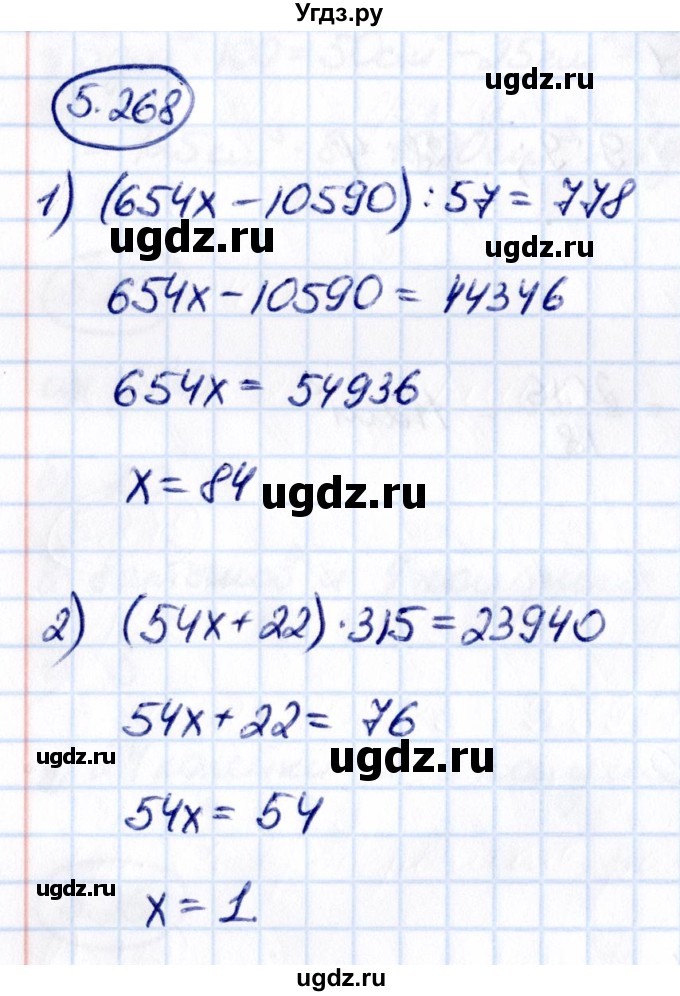 Угдз.ру
ugdz.ru
5.268
1) (654x - 10590) : 57 = 778
ugdz.ru ugdz.ru
654x - 10590 = 44346
654x = 54936
x = 84
ugdz.ru
2) (54x + 22) · 315 = 23940
54x + 22 = 76
ugdz.ru ugdz.ru
54x = 54
ugdz.ru
x = 1.
ugdz.ru